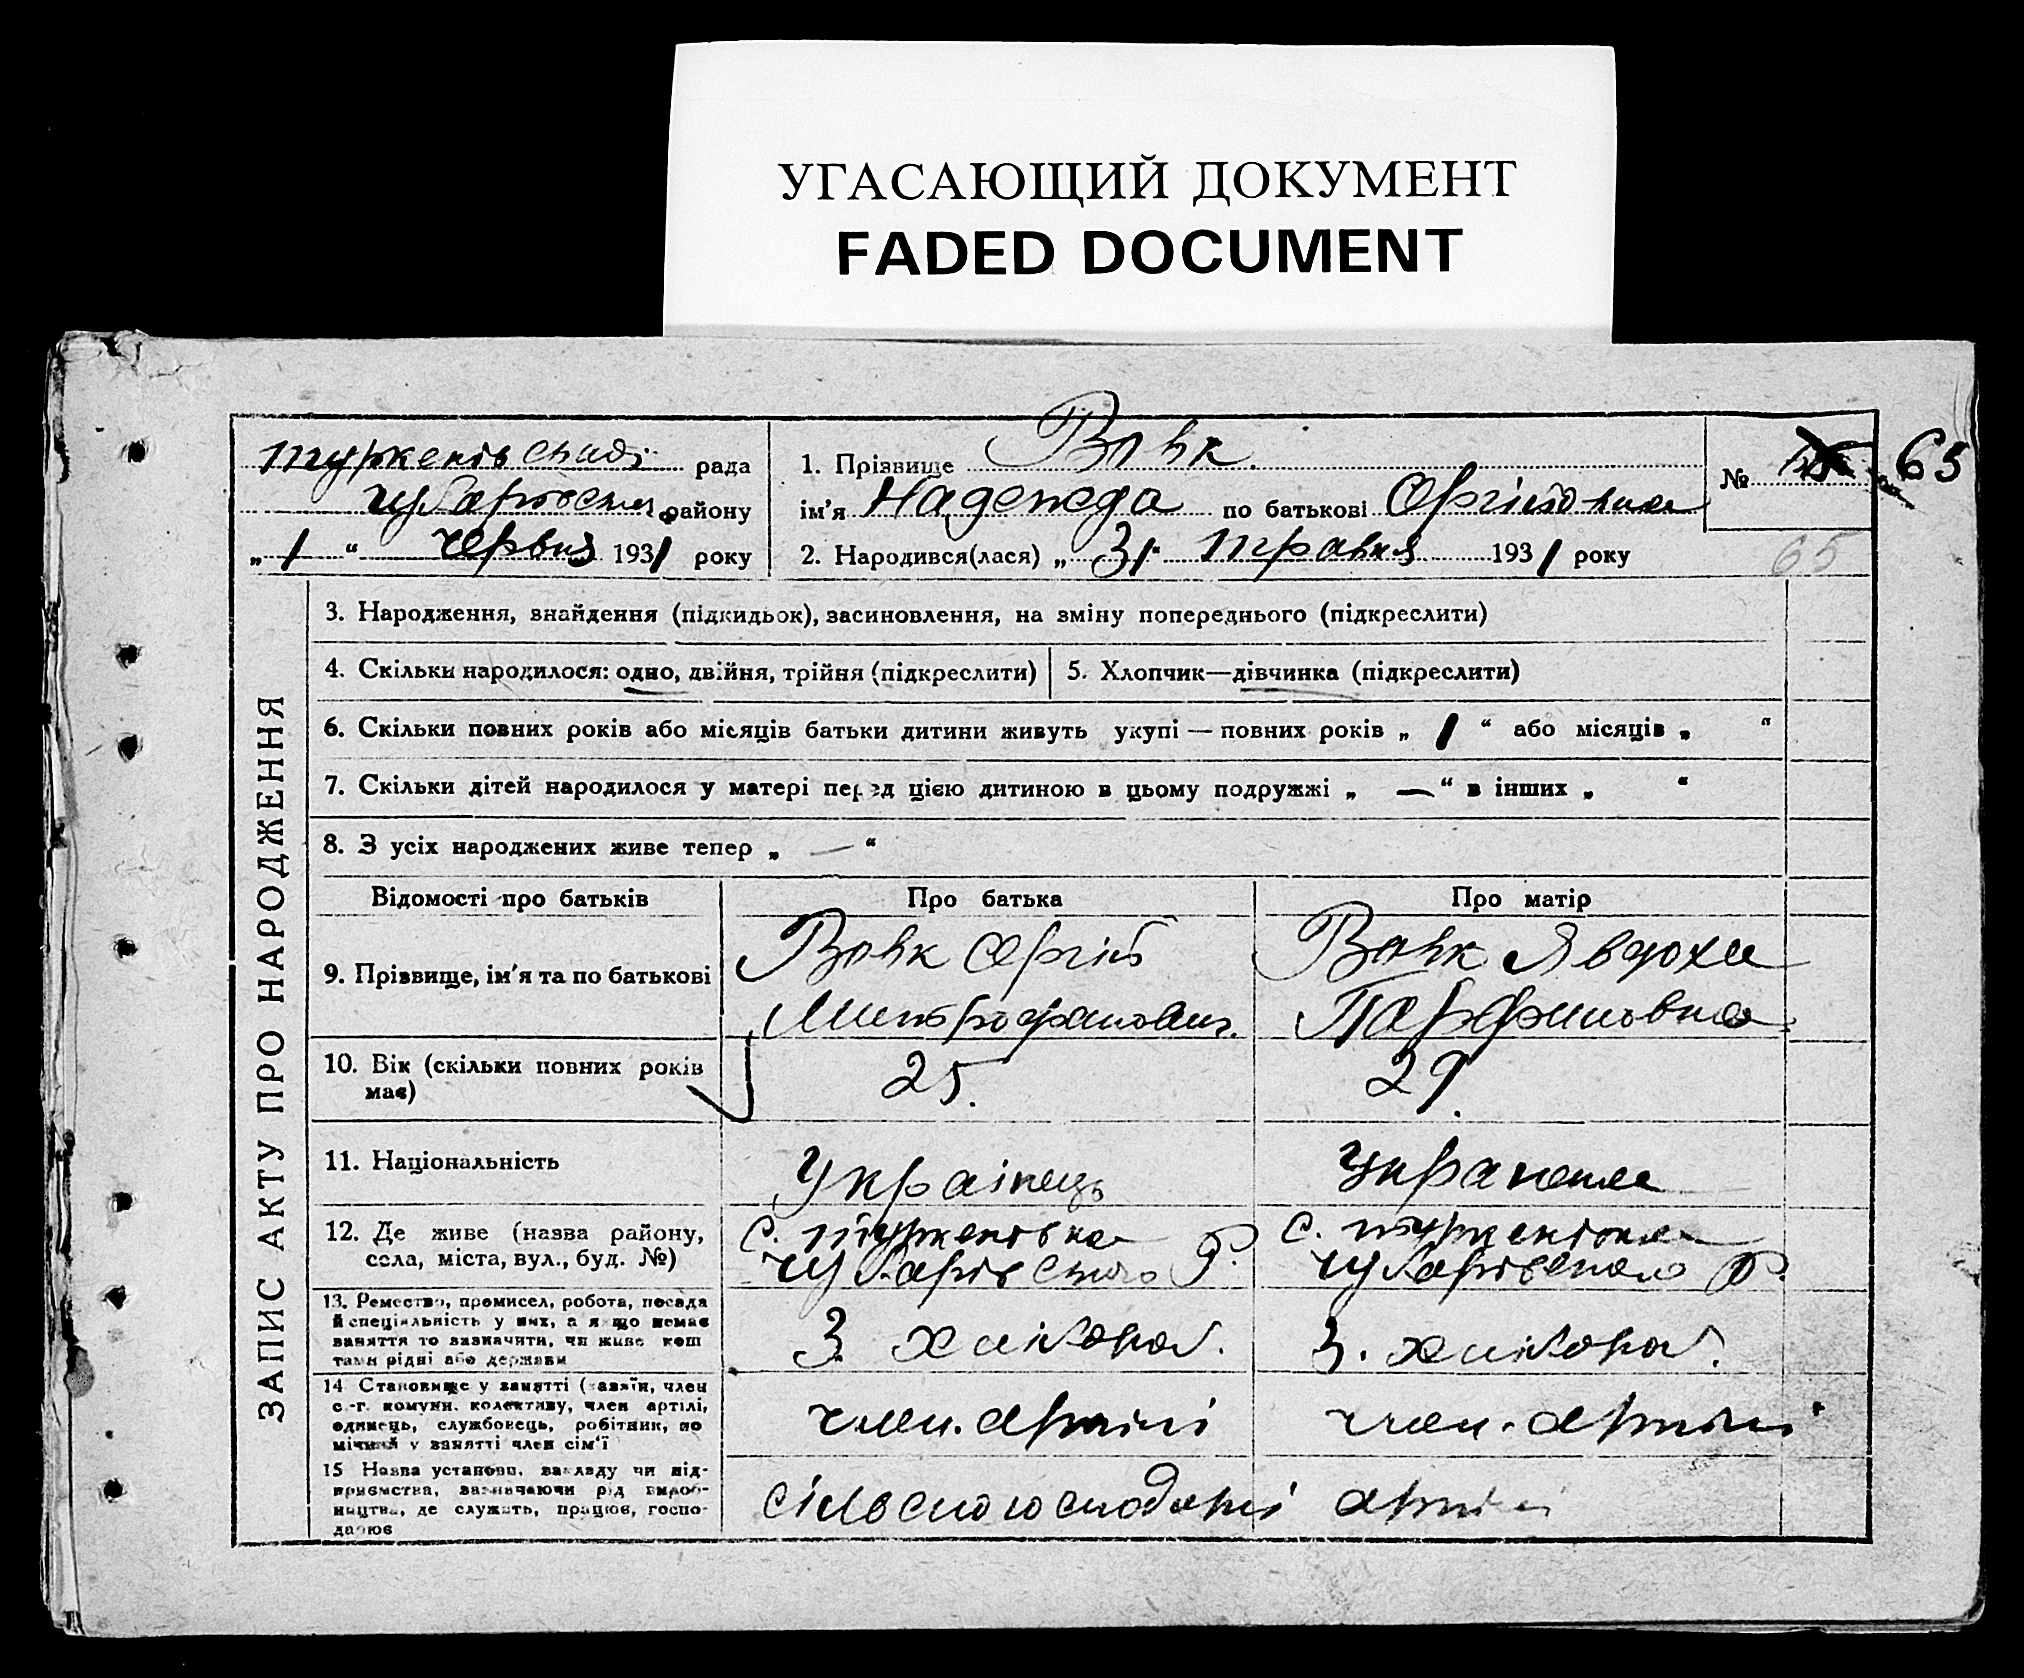 УГАСАЮЩИЙ ДОКУМЕНТ
FADED DOCUMENT
рада
району
„ 1 “ червня 1931 року
1. Прізвище Вовк
ім'я Надежда по батькові
2. Народився(лася) „ 31 “ травня 1931 року
№ 65
65
ЗАПИС АКТУ ПРО НАРОДЖЕННЯ
3. Народження, знайдення (підкидьок), засиновлення, на зміну попереднього (підкреслити)
4. Скільки народилося: одно, двійня, трійня (підкреслити)
5. Хлопчик—дівчинка (підкреслити)
6. Скільки повних років або місяців батьки дитини живуть укупі — повних років „ 1 “ або місяців „ “
7. Скільки дітей народилося у матері перед цією дитиною в цьому подружжі „ — “ в інших „ “
8. З усіх народжених живе тепер „ — “
Відомості про батьків
Про батька
Про матір
9. Прізвище, ім'я та по батькові
Вовк Сергій
Митрофанович.
Вовк Явдоха
Парфиновна
10. Вік (скільки повних років
має)
25.
29.
11. Національність
Українець
Українка
12. Де живе (назва району,
села, міста, вул., буд. №)
с. Туркенівка
Чубарівського Р.
с. Туркенівка
Чубарівського Р.
13. Ремество, промисел, робота, посада
й спеціяльність у них, а якщо немає
заняття то зазначити, чи живе кош
тами рідні або держави
З. хлібороб.
З. хлібороб.
14 Становище у занятті (хазяїн, член
с.-г. комуни, колективу, член артілі,
одинець, службовець, робітник, по
мічний у занятті член сім'ї
член. артілі
член. артілі
15 Назва установи, закладу чи під-
приємства, зазначаючи рід вироб-
ництва, де служить, працює, госпо-
дарює
артілі